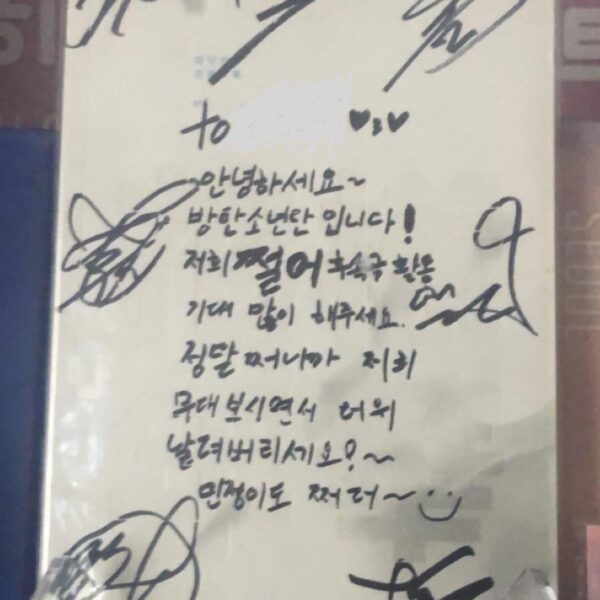 to ♥3♥
안녕하세요~
방탄소년단입니다!
저희 쩔어 후속곡 활동
기대 많이 해주세요.
정말 쩌니까 저희
무대 보시면서 더위
날려버리세요!~
민정이도 쩌러~ :)